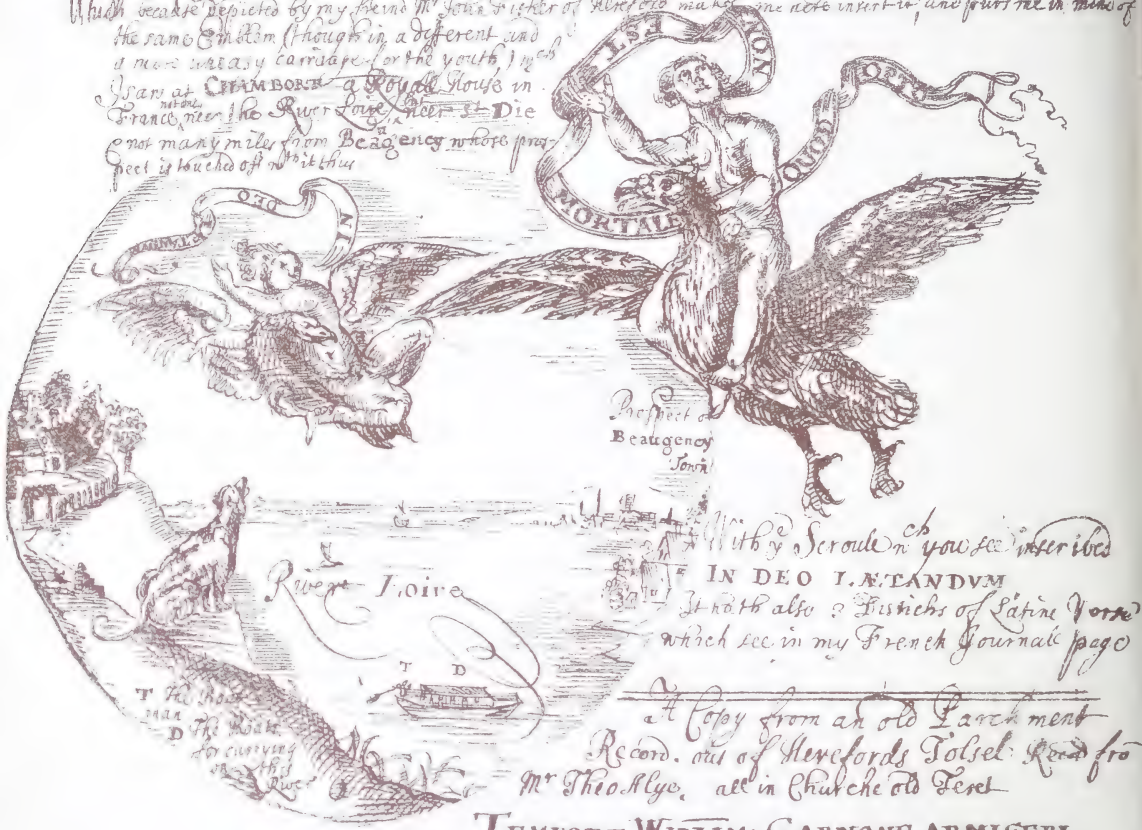 Which because depicted by my freind Mr John Fisher of Hereford makes me here insert it, and putts me in mind of
the same Emblem (though in a different and
a more uneasy carriage for the youth) wch
I saw at CHAMBORT a Royall House in
France, not neer the River Loire, neer St Die
& not many miles from Beagency whose pros-
pect is touched off wth it thus
NON EST MORTALE QUOD OPTO
IN DEO LÆTANDUM
Prospect of
Beaugency
Town
River Loire
T D
T the
man
D the Boate
for carrying
on this
River
With ye Scroule wch you see inscribed
IN DEO LÆTANDVM
It hath also 2 Distichs of Latine Verse
which see in my French Journall page
A Copy from an old Parchment
Record. out of Herefords Tolsel. Recd fro
Mr Theo Alye, all in Churche old Text